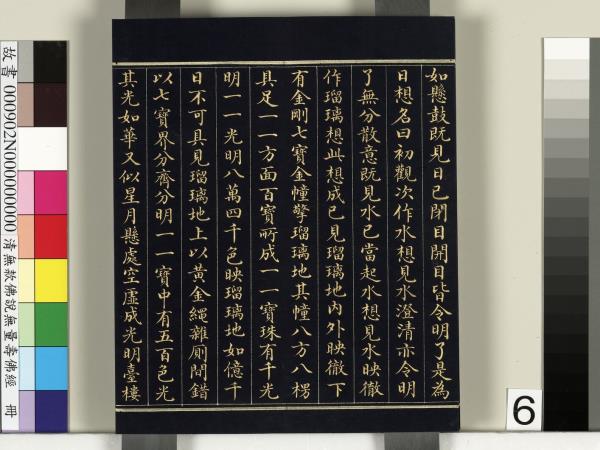 如懸鼓既見日已閉目開目皆令明了是為
日想名曰初觀次作水想見水澄清亦令明
了無分散意既見水已當起水想見水映徹
作瑠璃想此想成已見瑠璃地內外映徹下
有金剛七寶金幢擎瑠璃地其幢八方八楞
具足一一方面百寶所成一一寶珠有千光
明一一光明八萬四千色映瑠璃地如億千
日不可具見瑠璃地上以黃金繩雜廁間錯
以七寶界分齊分明一一寶中有五百色光
其光如華又似星月懸處空虛成光明臺樓
故書 000902N000000000 清無款佛說無量壽佛經 冊
6